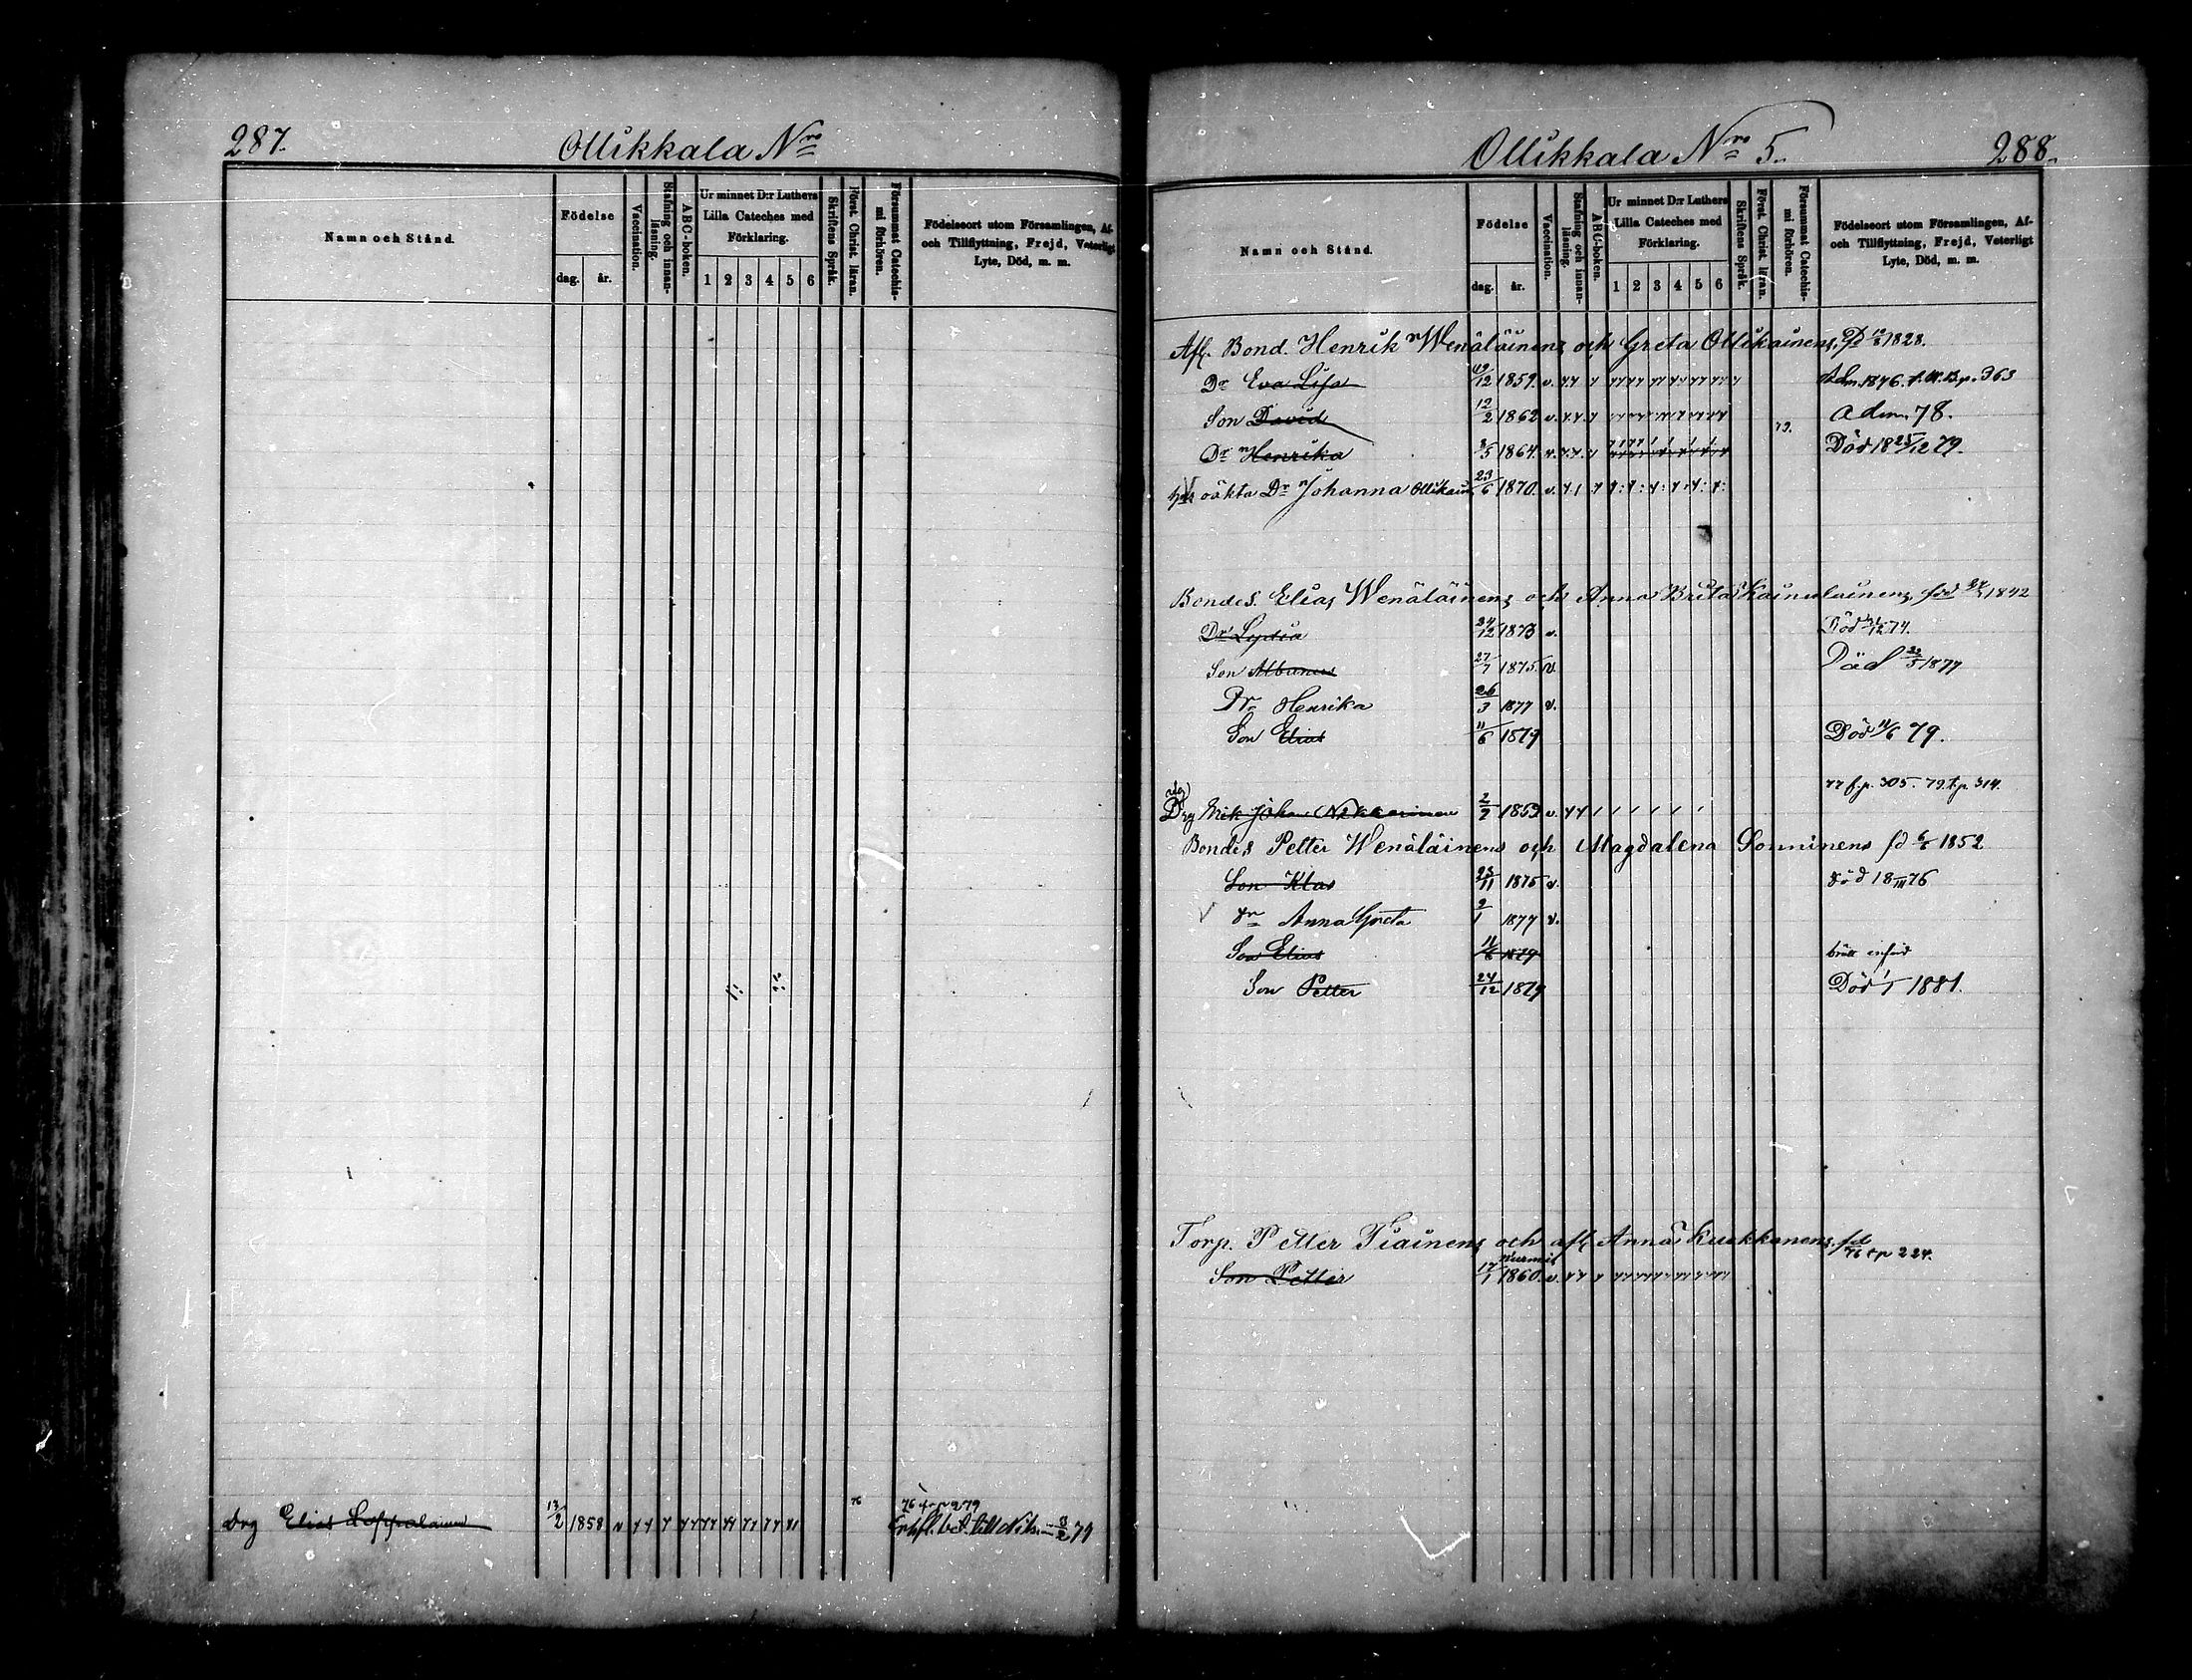 287.
Ollikkala Nro
Namn och Stånd.
Födelse
dag. år.
Vaccination.
Stafning och innanläsning.
ABC-boken.
Ur minnet D:r Luthers
Lilla Cateches med
Förklaring.
1 2 3 4 5 6
Skriftens Språk.
Först. Christ. läran.
Försummat Catechismi förhören.
Födelseort utom Församlingen, Af-
och Tillflyttning, Frejd, Veterligt
Lyte, Död, m. m.
76
76 f.p 279
Drg Elias Loppalainen 13/2 1858 v
till 79
Ollikkala Nro 5.
288.
Namn och Stånd.
Födelse
dag. år.
Vaccination.
Stafning och innanläsning.
ABC-boken.
Ur minnet D:r Luthers
Lilla Cateches med
Förklaring.
1 2 3 4 5 6
Skriftens Språk.
Först. Christ. läran.
Försummat Catechismi förhören.
Födelseort utom Församlingen, Af-
och Tillflyttning, Frejd, Veterligt
Lyte, Död, m. m.
Afl. Bond. Henrik Wenäläinens och Greta Ollikainens, 1828.
Dr Eva Lisa 19/12 1859. v. Adm 1876. p. 363
Son David 12/2 1862 v. adm. 78.
79.
Dr Henrika 3/5 1864. v. Död 18 25/12 79.
oäkta Dr Johanna Ollikain 23/6 1870. v.
Bondes. Elias Wenäläinens och Anna Brita Kainulainens, född 1842
Dr Lydia 24/12 1873 v. Död 74.
Son Albanus 27/7 1875 v. Död 1877
Dr Henrika 26/3 1877 v.
Son Elias 11/6 1879 Död 11/6 79.
77 f.p. 305. 79 t.p. 314.
Drg Erik Johan Nikkarinen 2/7 1853 v.
Bondes Petter Wenäläinens och Magdalena Sonninens fd 1852
Son Klas 23/11 1875 v. död 18/III 76
dr Anna Greta 9/1 1877 v.
Son Elias 11/6 1879 orätt införd
Son Petter 24/12 1879 Död 1/1 1881.
Torp. Petter Tiainens och afl Anna Kuikkanens fd
76 t p 224.
Nurmis
Son Petter 17/1 1860. v.